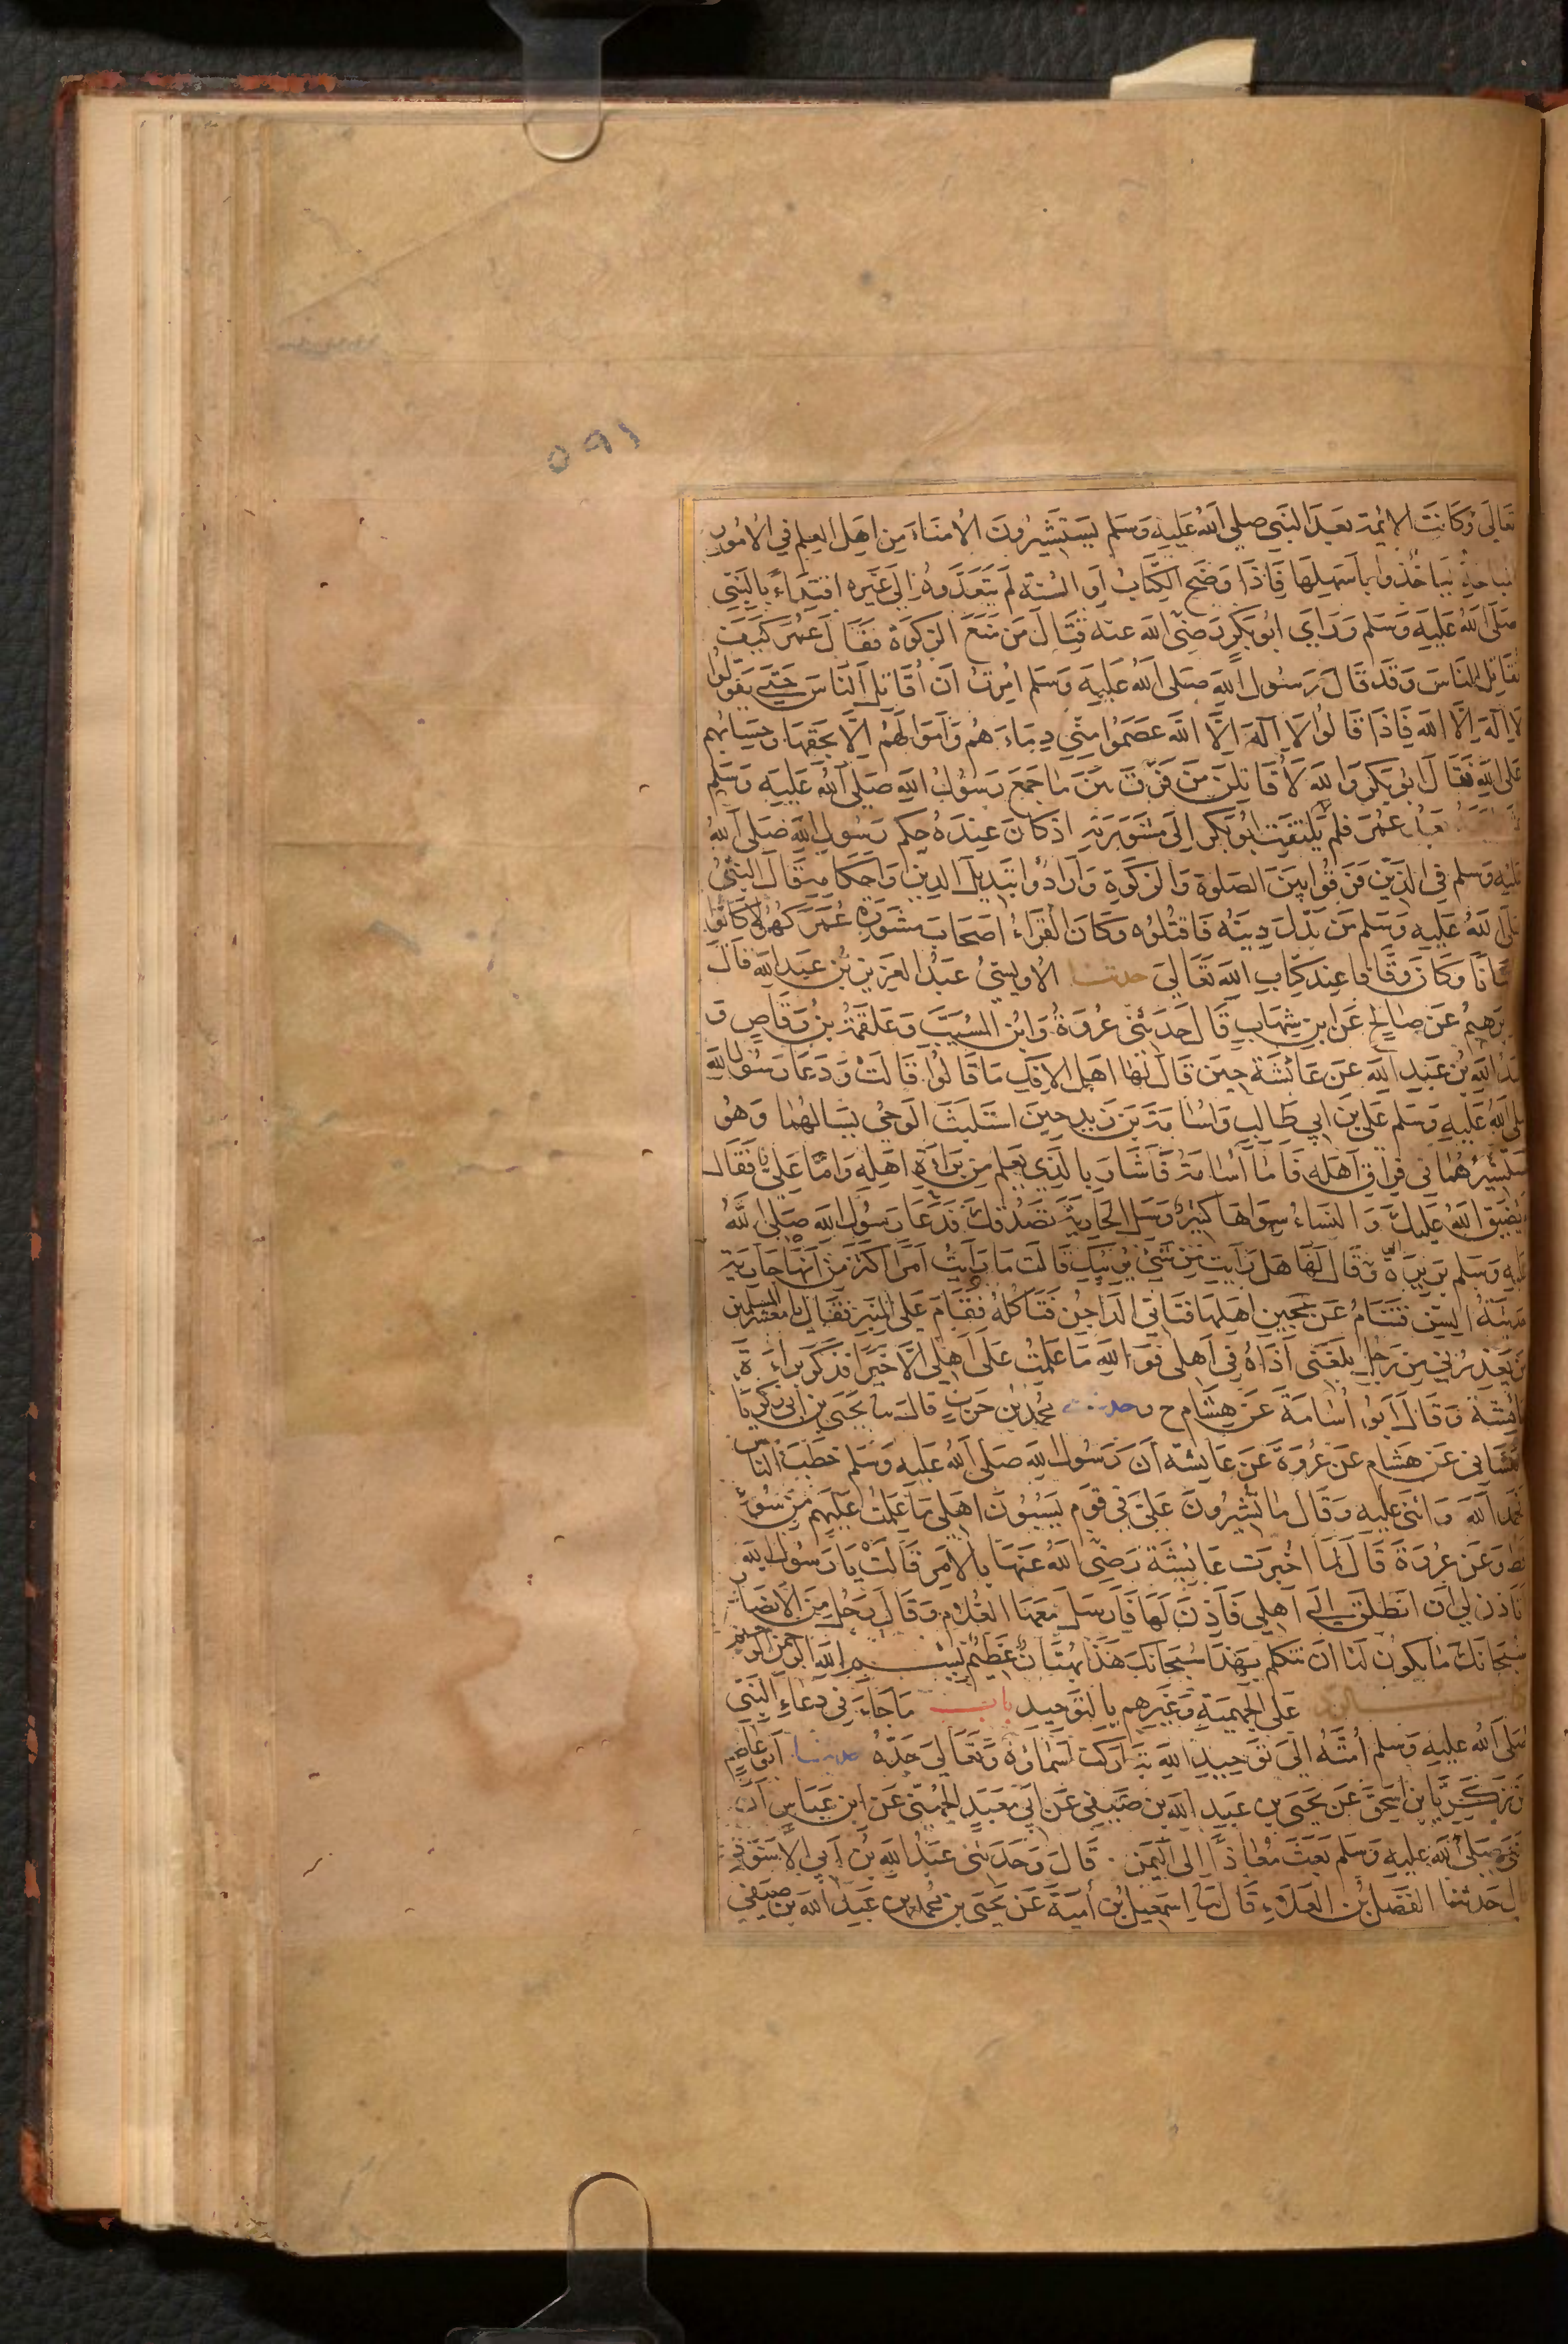 ٥٩١
تعالى وكانت الائمة بعد النبي صلى الله عليه وسلم يستشيرون الأمناء من اهل العلم في الأمور
المباحة ليأخذوا بأسهلها فاذا وضح الكتاب او السنة لم يتعدوه الى غيره اقتداء بالنبي
صلى الله عليه وسلم وراي ابو بكر رضي الله عنه قتال من منع الزكوة فقال عمر كيف
تقاتل الناس وقد قال رسول الله صلى الله عليه وسلم امرت ان أقاتل الناس حتى يقولوا
لا اله الا الله فاذا قالوا لا اله الا الله عصموا مني دماءهم واموالهم الا بحقها وحسابهم
على الله فقال ابو بكر والله لأقاتلن من فرق بين ما جمع رسول الله صلى الله عليه وسلم
عمر فلم يلتفت ابو بكر الى مشورة اذ كان عنده حكم رسول الله صلى الله
عليه وسلم في الذين فرقوا بين الصلوة والزكوة وأرادوا تبديل الدين واحكامه قال النبي
صلى الله عليه وسلم من بدل دينه فاقتلوه وكان القراء اصحاب مشورة عمر كهولا كانوا
شبانا وكان وقافا عند كتاب الله تعالى حدثنا الاويسي عبد العزيز بن عبد الله قال
ابرهيم عن صالح عن ابن شهاب قال حدثني عروة وابن المسيب وعلقمة بن وقاص و
عبيد الله بن عبد الله عن عائشة حين قال لها اهل الافك ما قالوا قالت ودعا رسول الله
صلى الله عليه وسلم علي بن ابي طالب واسامة بن زيد حين استلبث الوحي يسألهما وهو
يستشيرهما في فراق اهله فاما أسامة فأشار بالذي يعلم من براءة اهله واما علي فقال
لم يضيق الله عليك والنساء سواها كثير وسل الجارية تصدقك فدعا رسول الله صلى الله
عليه وسلم بريرة وقال لها هل رأيت من شيء يريبك قالت ما رأيت امرا اكثر من انها جارية
حديثة السن فتنام عن عجين اهلها فتاتي الداجن فتأكله فقام على المنبر فقال يا معشر المسلمين
من يعذرني من رجل بلغني أذاه في اهلي فوالله ما علمت على اهلي الا خيرا فذكر براءة
عائشة وقال ابو أسامة عن هشام ح وحدثنا محمد بن حرب قال نا يحيى بن ابي زكريا
الغساني عن هشام عن عروة عن عائشة أن رسول الله صلى الله عليه وسلم خطب الناس
فحمد الله واثنى عليه وقال ما تشيرون علي في قوم يسبون اهلي ما علمت عليهم من سوء
قط وعن عروة قال لما اخبرت عائشة رضي الله عنها بالامر قالت يا رسول الله
أتاذن لي ان انطلق الى اهلي فأذن لها فأرسل معها الغلام وقال رجل من الانصار
سبحانك ما يكون لنا ان نتكلم بهذا سبحانك هذا بهتان عظيم بسم الله الرحمن الرحيم
كتاب الرد على الجهمية وغيرهم بالتوحيد باب ما جاء في دعاء النبي
صلى الله عليه وسلم أمته الى توحيد الله تباركت اسماؤه وتعالى جده حدثنا ابو عاصم
عن زكريا بن اسحق عن يحيى بن عبد الله بن صيفي عن ابي معبد الجهني عن ابن عباس أن
النبي صلى الله عليه وسلم بعث معاذا الى اليمن قال وحدثني عبد الله بن أبي الأسود
قال حدثنا الفضل بن العلاء قال نا اسمعيل بن أمية عن يحيى بن محمد بن عبد الله بن صيفي